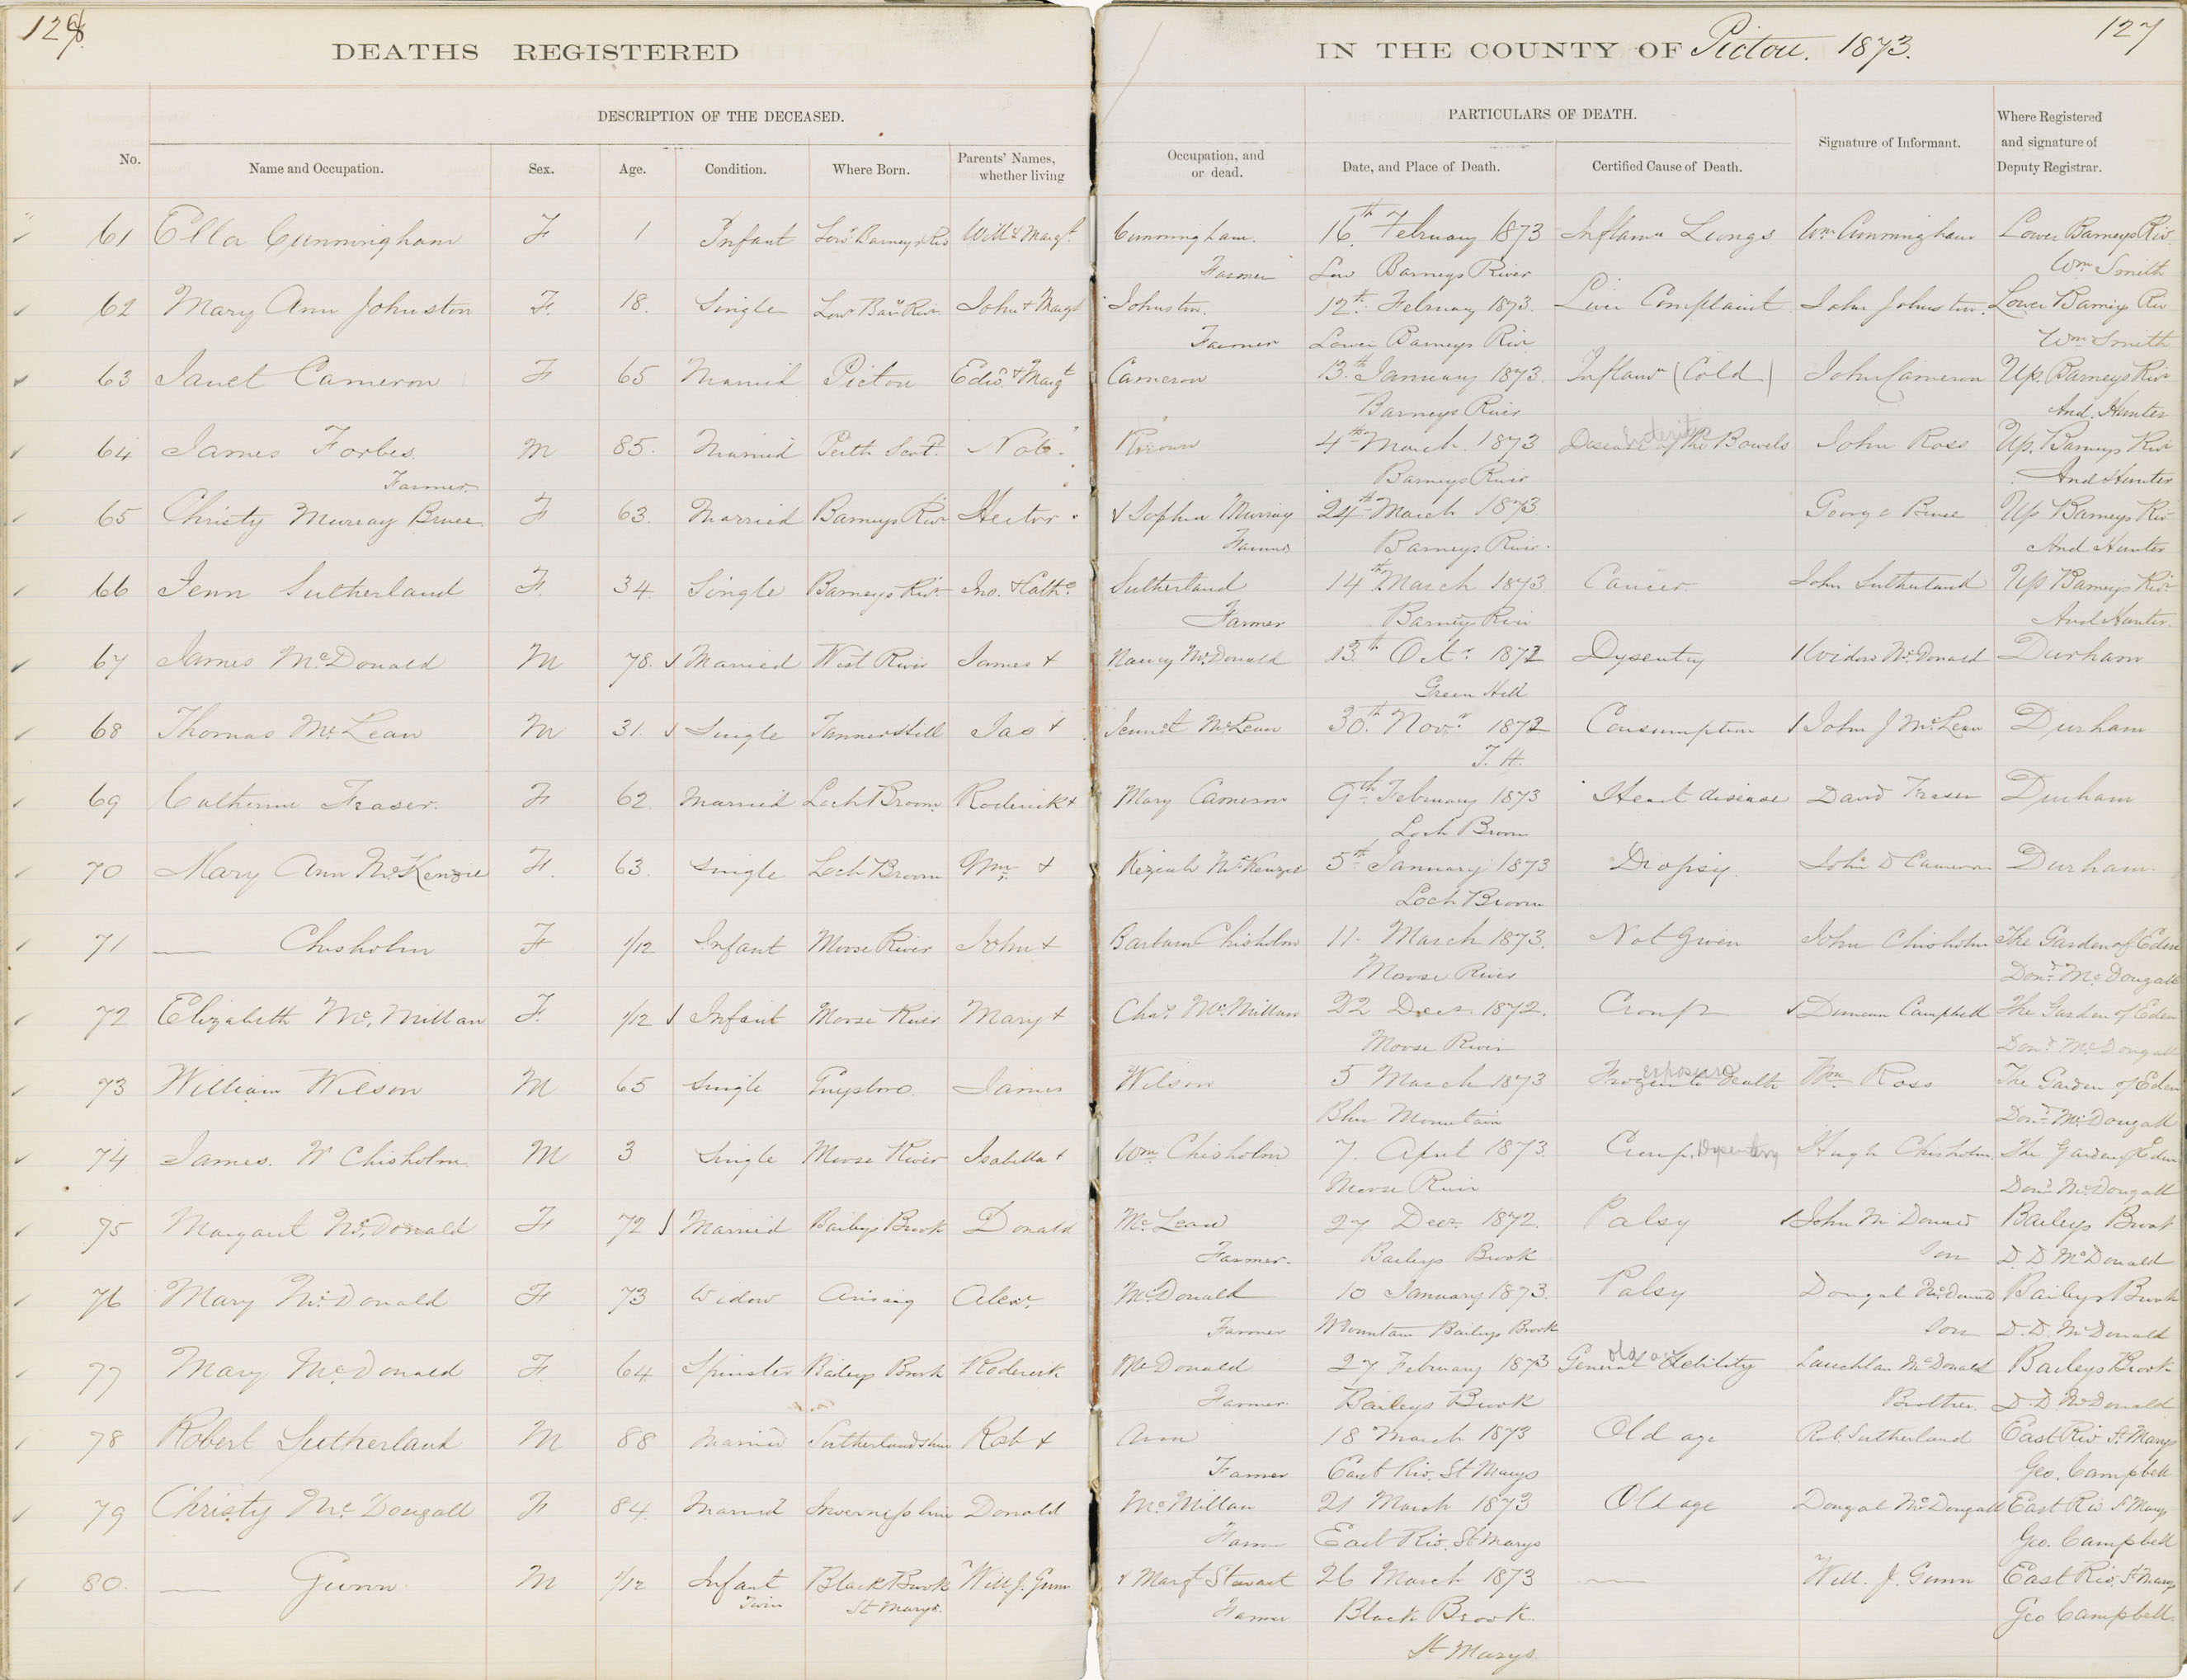 126
DEATHS REGISTERED
IN THE COUNTY OF Pictou. 1873.
127
DESCRIPTION OF THE DECEASED.
PARTICULARS OF DEATH.
Signature of Informant.
Where Registered
and signature of
Deputy Registrar.
No.
Name and Occupation.
Sex.
Age.
Condition.
Where Born.
Parents' Names,
whether living
Occupation, and
or dead.
Date, and Place of Death.
Certified Cause of Death.
61 Ella Cunningham F 1 Infant Lowr Barneys Riv Willm & Margt. Cunningham. 16th February 1873 Inflamn Lungs Wm Cunningham Lower Barneys Riv.
Farmer Low Barneys River Wm Smith
62 Mary Ann Johnston F. 18. Single Lowr Barn Rivr John & Margt Johnston. 12th February 1873. Liver Complaint John Johnston. Lower Barneys Riv
Farmer Lower Barneys Rivr Wm Smith
63 Janet Cameron F 65 Married Pictou Edwd. & Margt Cameron 13th January 1873. Inflamn (Cold) John Cameron Up. Barneys Rivr
Barneys River And. Hunter
64 James Forbes. M 85. Married Perth Scot. Not Known 4th March 1873 Disease of the Bowels John Ross Up. Barneys Rivr
Farmer. Barneys River And Hunter
65 Christy Murray Bruce. F 63. Married Barneys Rivr Hector & Sophia Murray 24th March 1873 George Bruce Up Barneys Riv
Farmer Barneys River. And Hunter
66 Jenn Sutherland F. 34 Single Barneys Rivr Jno. & Cathe. Sutherland 14th March 1873 Cancer. John Sutherland Up Barneys Rivr
Farmer Barneys River And Hunter.
67 James McDonald M 78. Married West River James & Nancy McDonald 13th Octr. 1872 Dysentry Widow McDonald Durham
Green Hill
68 Thomas McLean M 31. Single Tanners Hill Jas & Jennet McLean 30th Novr. 1872 Consumption John J McLean Durham
T. H.
69 Catherine Fraser. F 62. Married Loch Broom Roderick & Mary Cameron 9th February 1873 Heart disease David Fraser Durham
Loch Broom
70 Mary Ann McKenzie F. 63. Single Loch Broom Wm. & Keziah McKenzie 5th January 1873 Dropsy. John D Cameron Durham.
Loch Broom
71 — Chisholm F 1/12 Infant Moose River John & Barbara Chisholm 11. March 1873. Not Given John Chisholm The Garden of Eden
Moose River Dond. McDougall
72 Elizabeth Mc. Millan F. 1/12 Infant Moose River Mary & Chas. McMillan 22 Decr. 1872. Croup Duncan Campbell The Garden of Eden
Moose River Dond. McDougall
73 William Wilson M 65 Single Guysboro. James Wilson 5 March 1873 Frozen to Death exposure Wm Ross The Garden of Eden
Blue Mountain Dond. McDougall
74 James. W Chisholm. M 3 Single Moose River Isabella & Wm Chisholm 7. April 1873. Croup. Dysentery Hugh Chisholm. The Garden of Eden
Moose River Dond. McDougall
75 Margaret McDonald F 72 Married Baileys Brook Donald McLean 27 Decr. 1872. Palsy John McDonald Baileys Brook
Farmer. Baileys Brook Son D. D. McDonald
76 Mary McDonald F 73 Widow Arisaig Alexr. McDonald 10 January 1873. Palsy Dougal McDonald Baileys Brook
Farmer Mountain Baileys Brook Son D. D. McDonald
77 Mary McDonald F. 64. Spinster Baileys Brook Roderick McDonald 27 February 1873 General Debility old age Lauchlan McDonald Baileys Brook
Farmer. Baileys Brook Brother. D. D McDonald
78 Robert Sutherland M 88 Married Sutherlandshire Robt & Ann 18 March 1873 Old age Rob. Sutherland East Riv St. Marys
Farmer East Riv. St Marys Geo. Campbell
79 Christy McDougall F 84. Married Invernesshire Donald McMillan 21 March 1873 Old age Dougal McDougall East Riv St Marys
Farmer East Riv. St Marys Geo. Campbell
80. — Gunn M 1/12 Infant Black Brook Will. J. Gunn & Margt Stewart 26 March 1873 — Will. J. Gunn East Riv. St Marys
Twin St Marys. Farmer Black Brook Geo Campbell.
St Marys